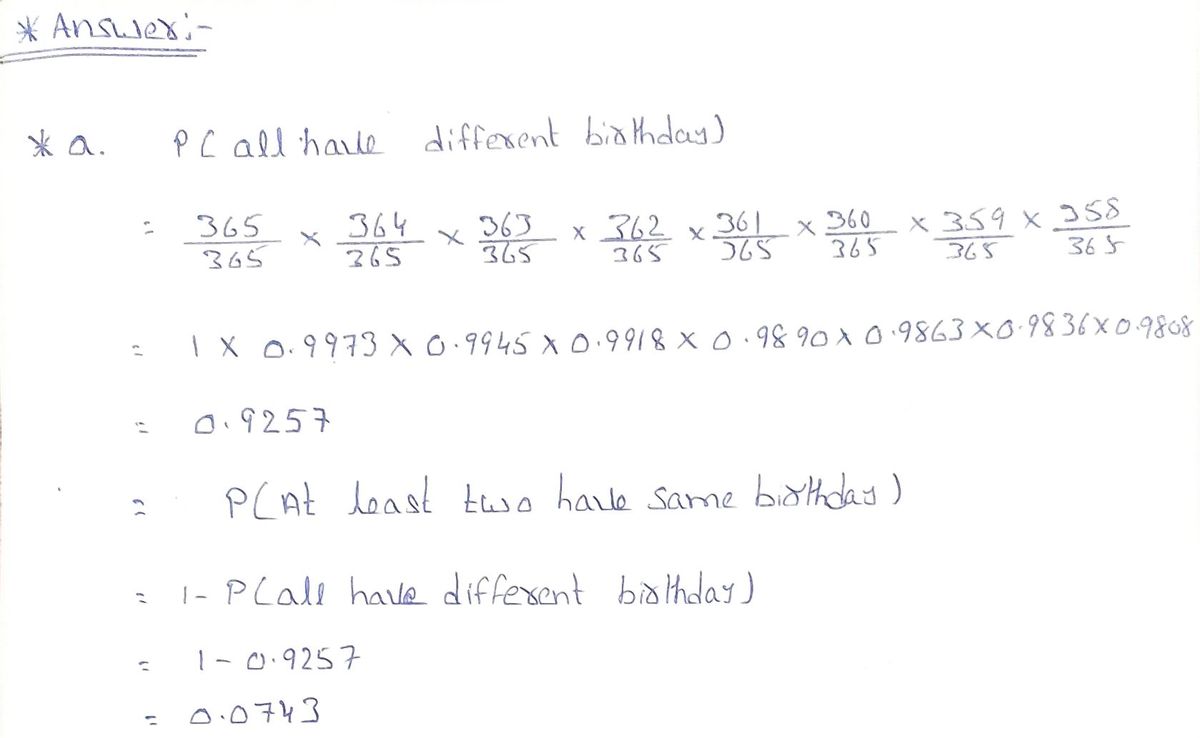 * Answer:-
* a. P( all have different birthday)
= 365/365 × 364/365 × 363/365 × 362/365 × 361/365 × 360/365 × 359/365 × 358/365
= 1 × 0.9973 × 0.9945 × 0.9918 × 0.9890 × 0.9863 × 0.9836 × 0.9808
= 0.9257
= P(At least two have same birthday)
= 1- P(all have different birthday)
= 1 - 0.9257
= 0.0743